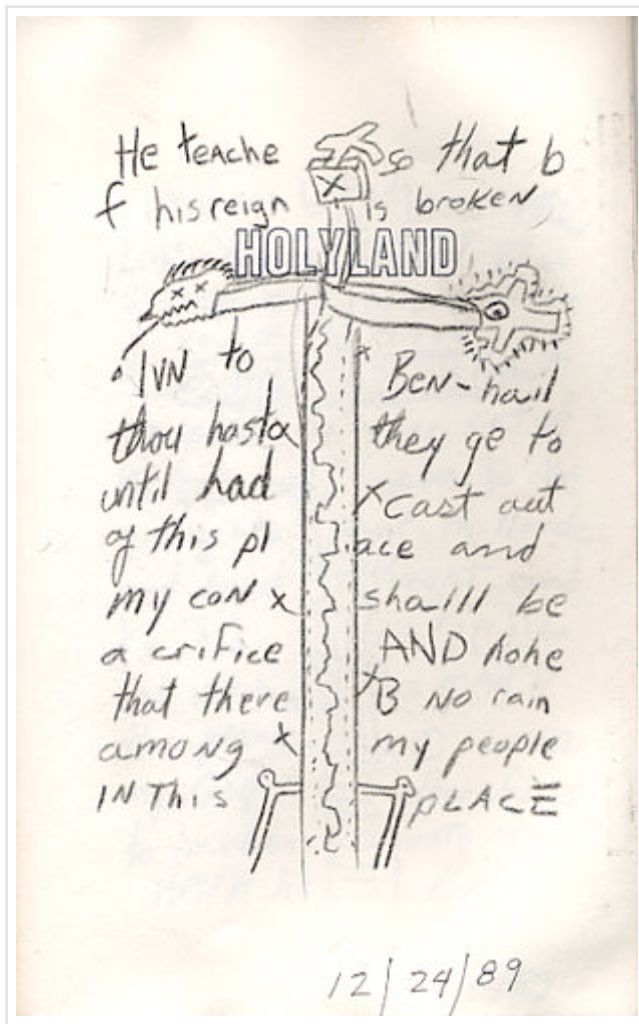 He teache so that b
f his reign is broken
HOLYLAND
IVN to Ben-hail
thou hasta they ge to
until had cast out
of this pl ace and
my con shaill be
a crifice AND hohe
that there B No rain
among my people
IN This PLACE
12/24/89